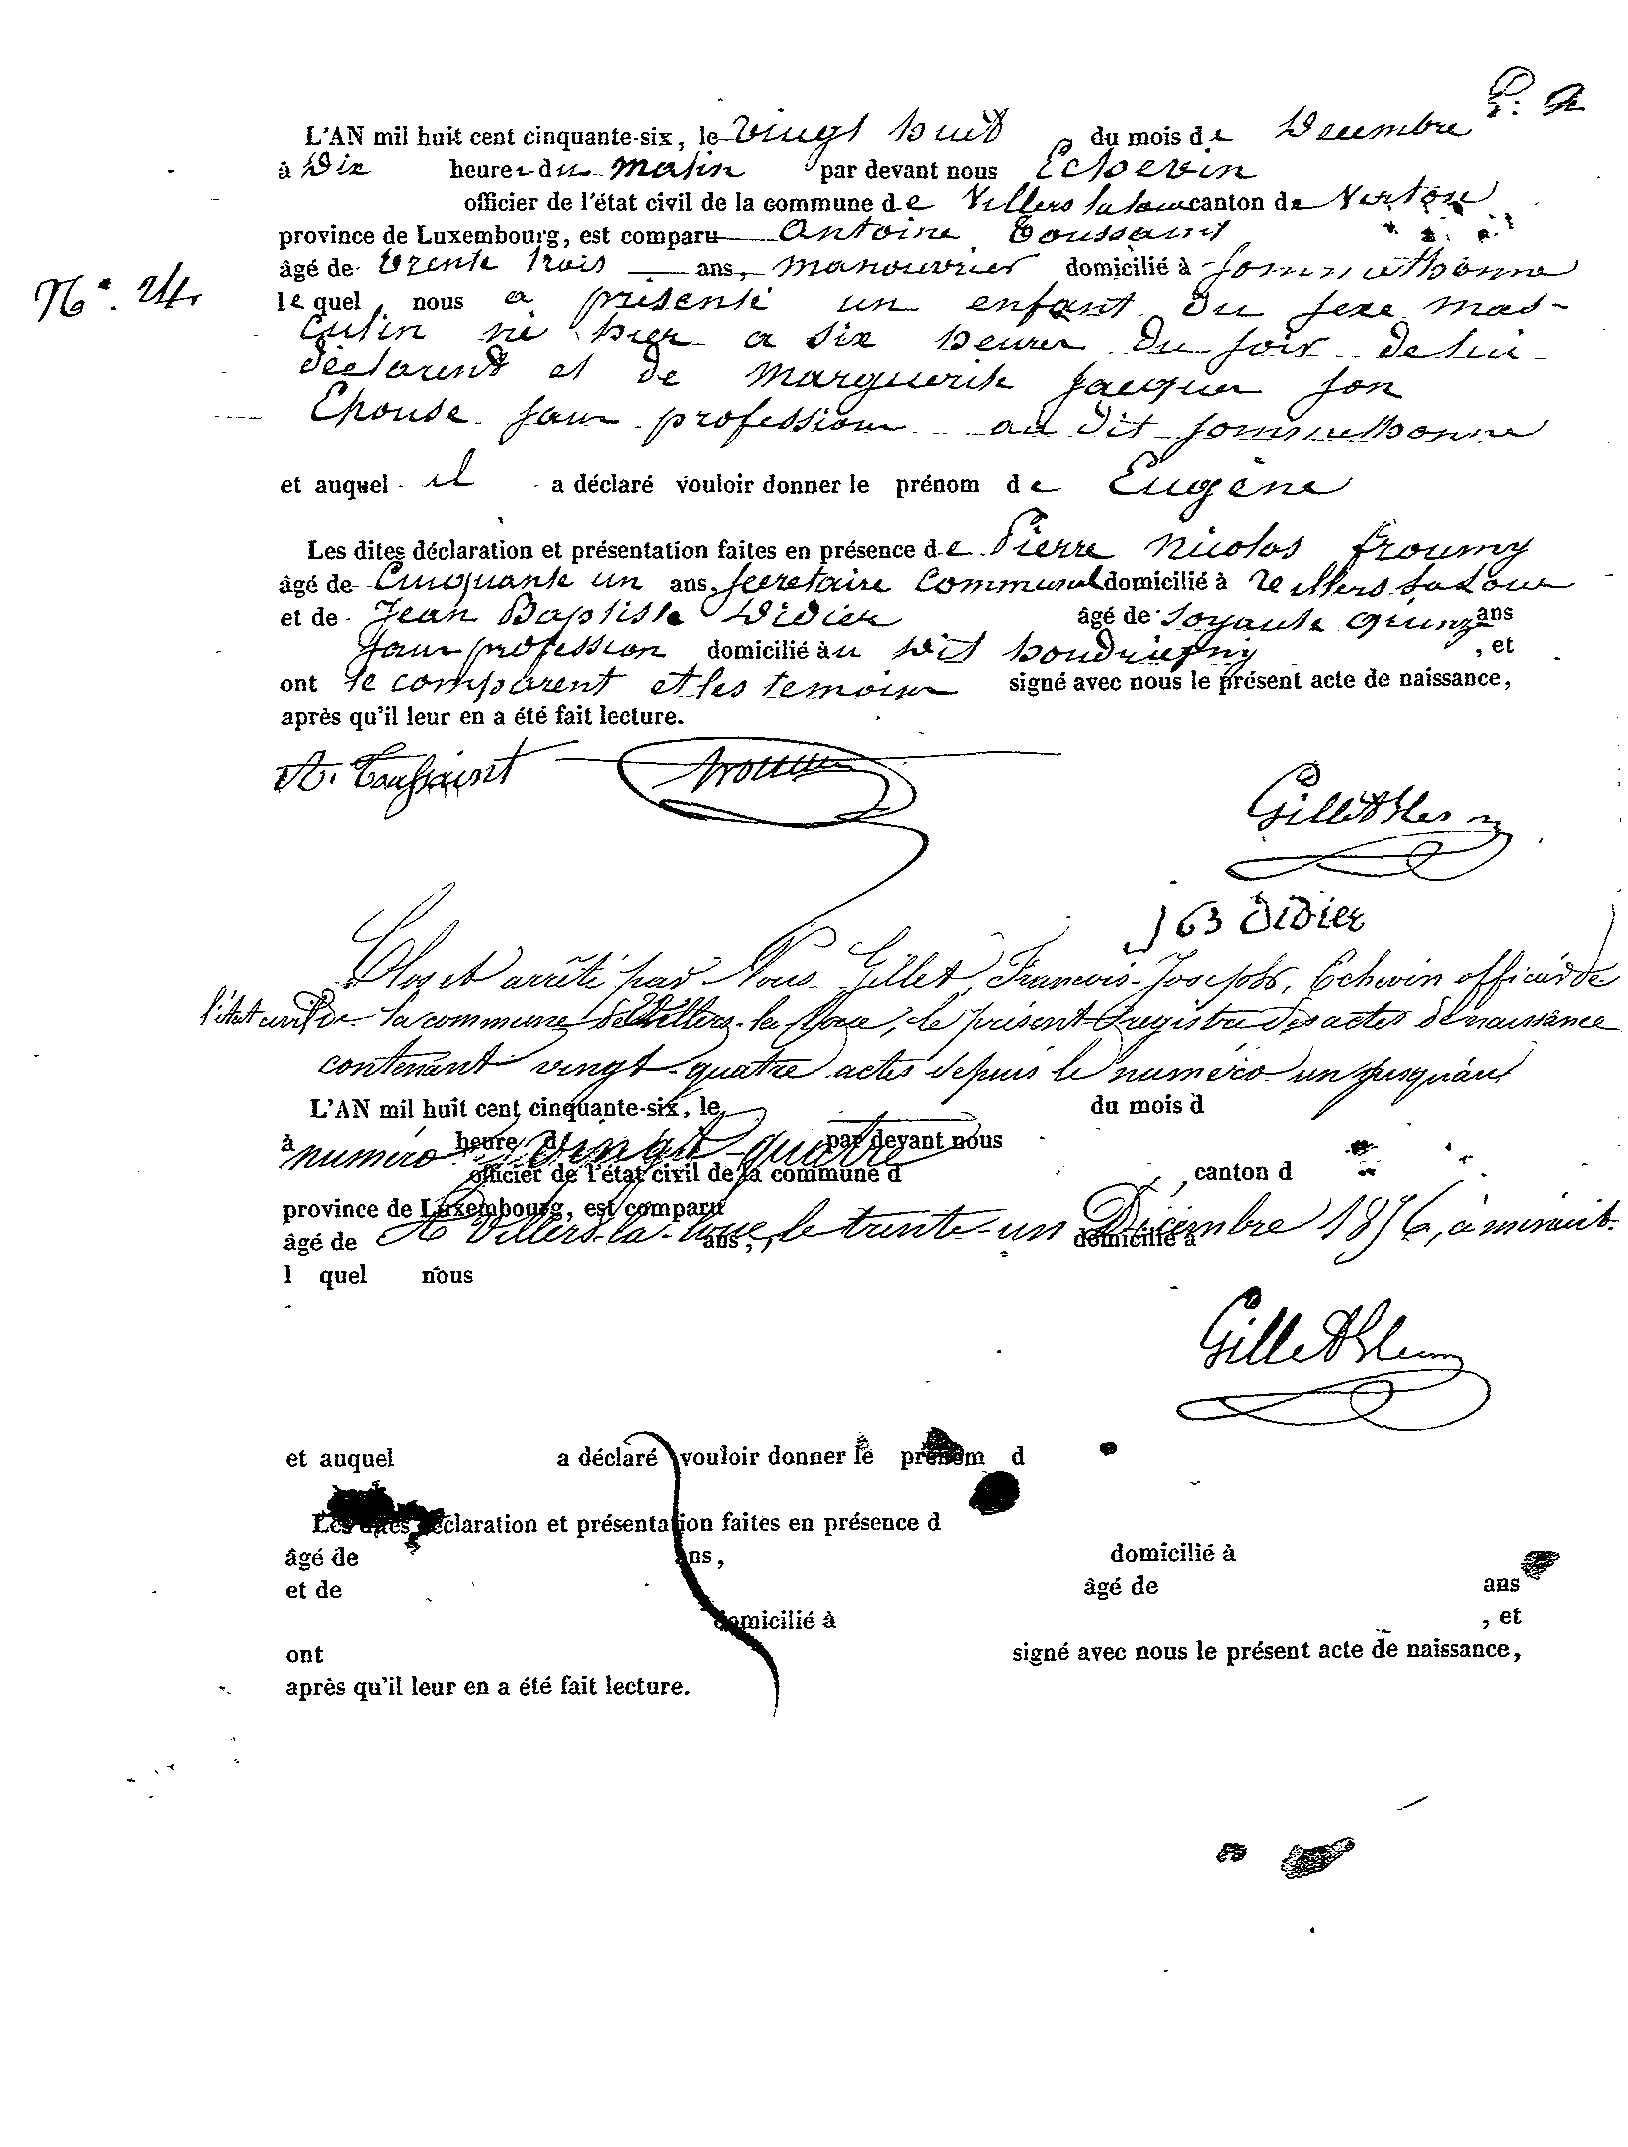 L'AN mil huit cent cinquante-six, le vingt huit du mois de Decembre
à Dix heures du matin par devant nous Echevin
officier de l'état civil de la commune de Villers la loue canton de Virton
province de Luxembourg, est comparu Antoine Toussaint
âgé de trente trois ans, manouvrier domicilié à Sommethonne
N° 24. le quel nous a présenté un enfant du sexe mas-
culin né hier a six heures du soir de lui
déclarent et de Marguerite Jacques son
Epouse sans profession au dit Sommethonne
et auquel il a déclaré vouloir donner le prénom de Eugène
Les dites déclaration et présentation faites en présence de Pierre Nicolas
âgé de Cinquante un ans, secretaire Communal domicilié à Villers la Loue
et de Jean Baptiste Didier âgé de soyante quinze ans
sans profession domicilié au dit houdrigny , et
ont le comparent et les temoins signé avec nous le présent acte de naissance,
après qu'il leur en a été fait lecture.
A. Toussaint
Didier
Clos et arrêté par Nous Gillet, Francois-Joseph, Echevin officier de
l'état civil de la commune de Villers-la-Loue, le présent registre des actes de naissance
contenant vingt-quatre actes depuis le numéro un jusqu'au
L'AN mil huit cent cinquante-six, le du mois d
à heure d par devant nous
numéro vingt-quatre
officier de l'état civil de la commune d , canton d
province de Luxembourg, est comparu
A Villers-la-Loue, le trente-un Décembre 1856, à minuit.
âgé de ans, domicilié à
l quel nous
et auquel a déclaré vouloir donner le prénom d
Les dites déclaration et présentation faites en présence d
âgé de ans, domicilié à
et de âgé de ans
domicilié à , et
ont signé avec nous le présent acte de naissance,
après qu'il leur en a été fait lecture.